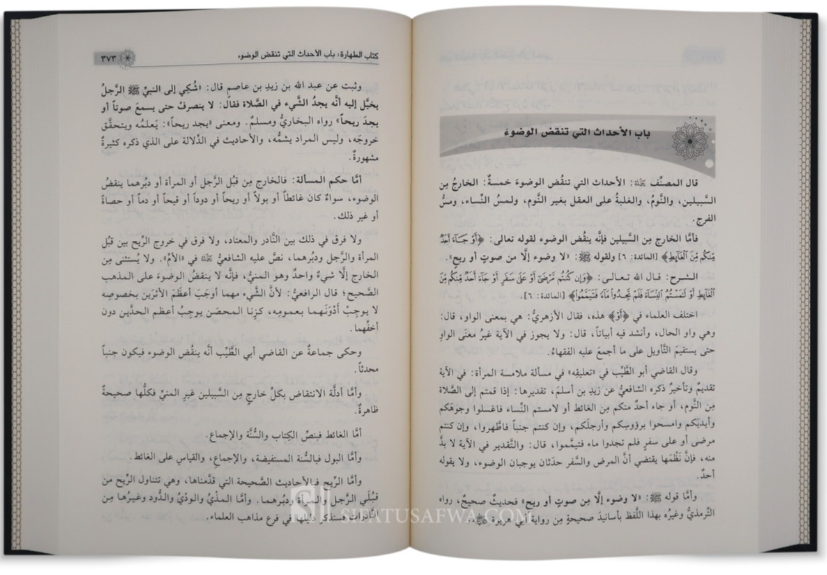 باب الأحداث التي تنقض الوضوء
قال المصنِّف ﷀ: الأحداث التي تنقُض الوضوءَ خمسةٌ: الخارجُ مِن
السَّبيلين، والنَّومُ، والغلبةُ على العقل بغير النَّوم، ولمسُ النِّساء، ومسُّ
الفرج.
فأمَّا الخارج مِن السَّبيلين فإنَّه ينقُض الوضوءَ لقوله تعالى: ﴿أَوْ جَآءَ أَحَدٌ
مِّنكُم مِّنَ ٱلْغَآئِطِ﴾ [المائدة: ٦] ولقوله ﷺ: «لا وضوءَ إلَّا مِن صوتٍ أو ريحٍ».
الشـرح: قـال الله تـعـالـى: ﴿وَإِن كُنتُم مَّرْضَىٰٓ أَوْ عَلَىٰ سَفَرٍ أَوْ جَآءَ أَحَدٌ مِّنكُم مِّنَ
ٱلْغَآئِطِ أَوْ لَٰمَسْتُمُ ٱلنِّسَآءَ فَلَمْ تَجِدُوا۟ مَآءً فَتَيَمَّمُوا۟﴾ [المائدة: ٦].
اختلف العلماء في ﴿أَوْ﴾ هذه، فقال الأزهريُّ: هي بمعنى الواو، قال:
وهي واو الحال، وأنشد فيه أبياتاً، قال: ولا يجوز في الآية غيرُ معنَى الواوِ
حتى يستقيمَ التَّأويل على ما أجمعَ عليه الفقهاءُ.
وقال القاضي أبو الطَّيِّب في «تعليقِه» في مسألة ملامسة المرأة: في الآية
تقديمٌ وتأخيرٌ ذكره الشافعيُّ عن زيدِ بن أسلمَ، تقديرها: إذا قمتم إلى الصَّلاة
مِن النَّوم، أو جاء أحدٌ منكم مِن الغائط أو لامستم النِّساء فاغسلوا وجوهَكم
وأيديَكم وامسحوا برؤوسِكم وأرجلَكم، وإن كنتم جنباً فاطَّهروا، وإن كنتم
مرضى أو على سفرٍ فلم تجدوا ماء فتيمَّموا، قال: والتَّقدير في الآية لا بدَّ
منه، فإنَّ نظمَها يقتضي أنَّ المرض والسَّفر حدَثان يوجبان الوضوء، ولا يقوله
أحدٌ.
وأمَّا قوله ﷺ: «لا وضوءَ إلَّا مِن صوتٍ أو ريحٍ» فحديثٌ صحيحٌ، رواه
التِّرمذيُّ وغيرُه بهذا اللَّفظ بأسانيدَ صحيحةٍ مِن رواية أبي هريرة
كتاب الطهارة: باب الأحداث التي تنقض الوضوء
٣٧٣
وثبت عن عبد الله بن زيدِ بن عاصمٍ قال: «شُكِي إلى النبيِّ ﷺ الرَّجلُ
يخيَّل إليه أنَّه يجدُ الشَّيءَ في الصَّلاة فقال: لا ينصرفُ حتى يسمعَ صوتاً أو
يجدَ ريحاً» رواه البخاريُّ ومسلمٌ. ومعنى «يجد ريحاً»: يَعلمُه ويتحقَّق
خروجَه، وليس المراد يشمُّه، والأحاديث في الدِّلالة على الذي ذكره كثيرةٌ
مشهورةٌ.
أمَّا حكم المسألة: فالخارج مِن قُبل الرَّجل أو المرأة أو دبُرِهما ينقضُ
الوضوء، سواءٌ كان غائطاً أو بولاً أو ريحاً أو دوداً أو قيحاً أو دماً أو حصاةً
أو غير ذلك.
ولا فرق في ذلك بين النَّادر والمعتاد، ولا فرق في خروج الرِّيح بين قُبل
المرأة والرَّجل ودبُرِهما، نصَّ عليه الشافعيُّ ﷀ في «الأمِّ». ولا يُستثنى مِن
الخارج إلَّا شيءٌ واحدٌ وهو المنيُّ، فإنَّه لا ينقضُ الوضوءَ على المذهب
الصَّحيح؛ قال الرافعيُّ: لأنَّ الشَّيء مهما أوجَبَ أعظَمَ الأثَرَين بخصوصِه
لا يوجِبُ أَدْوَنَهما بعمومِه، كزنا المحصَن يوجِبُ أعظمَ الحدَّين دون
أخفِّهما.
وحكى جماعةٌ عن القاضي أبي الطَّيِّب أنَّه ينقُض الوضوء فيكون جنباً
محدثاً.
وأمَّا أدلَّة الانتقاض بكلِّ خارجٍ مِن السَّبيلين غيرِ المنيِّ فكلُّها صحيحةٌ
ظاهرةٌ.
أمَّا الغائط فبنصِّ الكِتاب والسُّنَّة والإجماع.
وأمَّا البول فبالسنة المستفيضة، والإجماعِ، والقياسِ على الغائط.
وأمَّا الرِّيح فبالأحاديث الصَّحيحة التي قدَّمناها، وهي تتناول الرِّيح من
قُبلَي الرَّجل والمرأة ودبُرِهما. وأمَّا المذْيُ والودْيُ والدُّود وغيرُها مِن
النَّادرات فستُذكر دليلُها في فرع مذاهب العلماء.
SIFATUSAFWA.COM